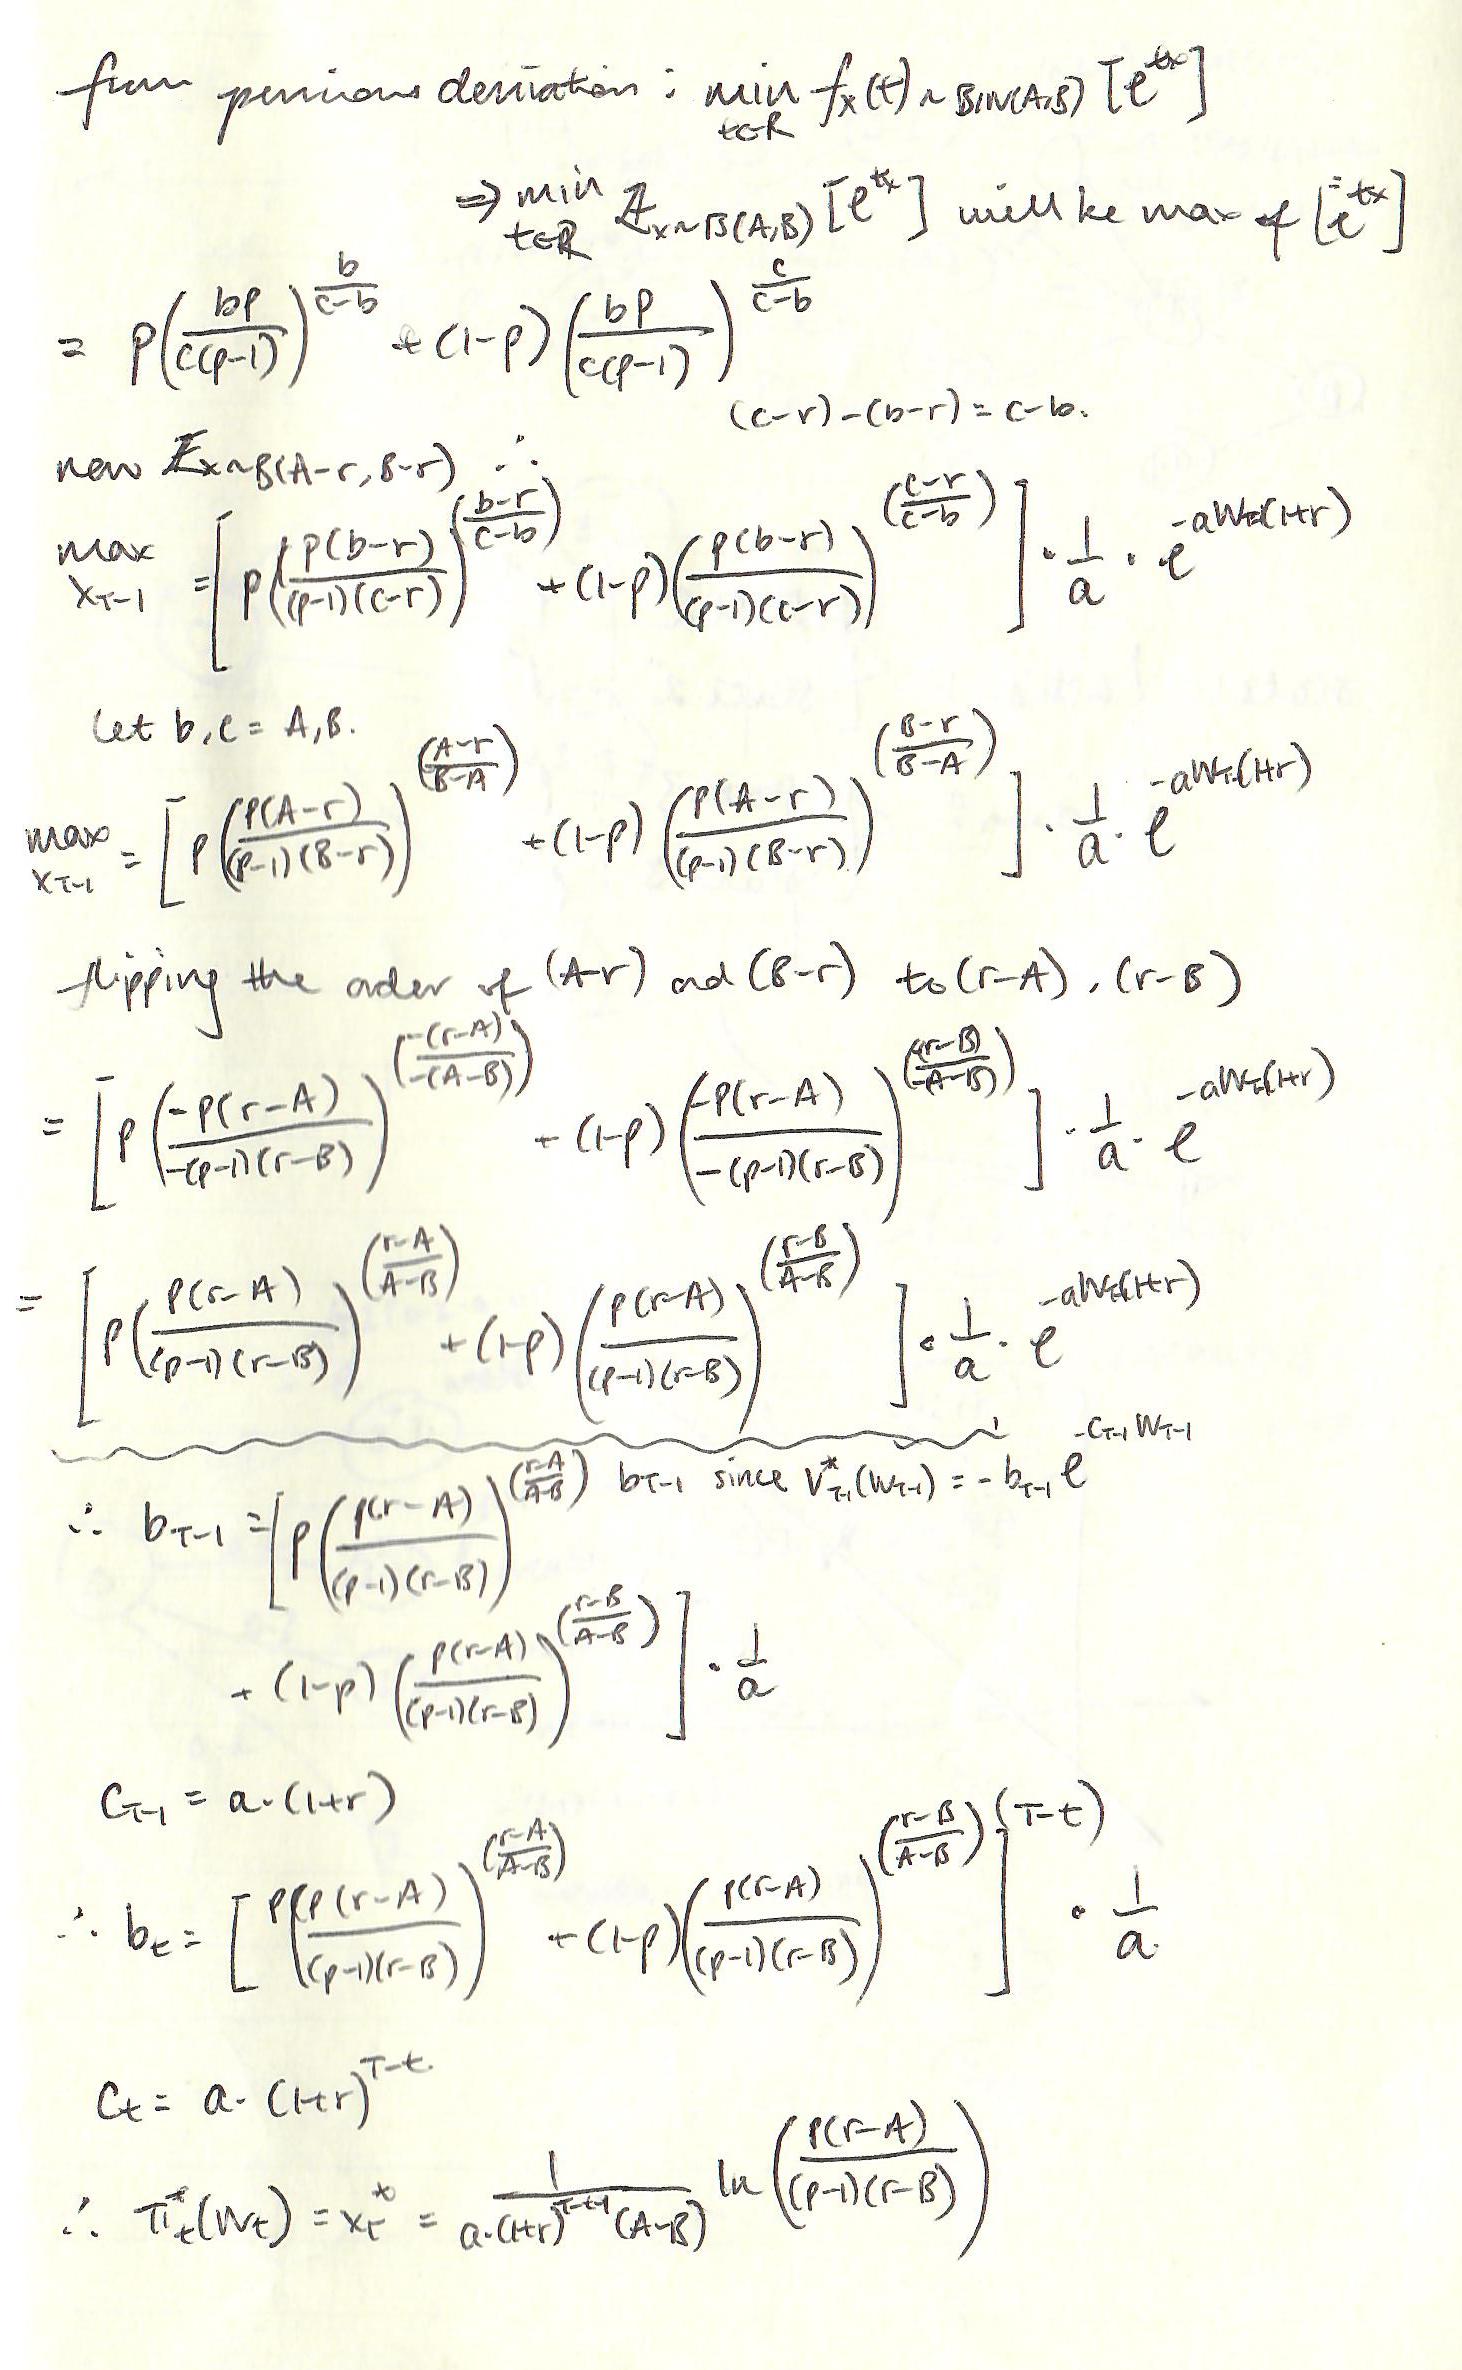 from previous derivation : min_{t∈R} f_x(t) ~ BIN(A,B) [e^{tx}]
⇒ min_{t∈R} E_{x~B(A,B)} [e^{tx}] will be max of [e^{-tx}]
= p(bp/(c(p-1)))^{b/(c-b)} + (1-p)(bp/(c(p-1)))^{c/(c-b)}
(c-r)-(b-r) = c-b.
new E_{x~B(A-r, B-r)} ∴
max_{x_{T-1}} = [p(p(b-r)/((p-1)(c-r)))^{((b-r)/(c-b))} + (1-p)(p(b-r)/((p-1)(c-r)))^{((c-r)/(c-b))}] · 1/a · e^{-aW_{T-1}(1+r)}
Let b, c = A, B.
max_{x_{T-1}} = [p(p(A-r)/((p-1)(B-r)))^{((A-r)/(B-A))} + (1-p)(p(A-r)/((p-1)(B-r)))^{((B-r)/(B-A))}] · 1/a · e^{-aW_{T-1}(1+r)}
flipping the order of (A-r) and (B-r) to (r-A), (r-B)
= [p(-p(r-A)/(-(p-1)(r-B)))^{(-(r-A)/(-(A-B)))} + (1-p)(-p(r-A)/(-(p-1)(r-B)))^{(-(r-B)/(-(A-B)))}] · 1/a · e^{-aW_{T-1}(1+r)}
= [p(p(r-A)/((p-1)(r-B)))^{((r-A)/(A-B))} + (1-p)(p(r-A)/((p-1)(r-B)))^{((r-B)/(A-B))}] · 1/a · e^{-aW_{T-1}(1+r)}
∴ b_{T-1} = [p(p(r-A)/((p-1)(r-B)))^{((r-A)/(A-B))} b_{T-1} since V*_{T-1}(W_{T-1}) = -b_{T-1} e^{-c_{T-1} W_{T-1}}
+ (1-p)(p(r-A)/((p-1)(r-B)))^{((r-B)/(A-B))}] · 1/a
C_{T-1} = a·(1+r)
∴ b_t = [p(p(r-A)/((p-1)(r-B)))^{((r-A)/(A-B))} + (1-p)(p(r-A)/((p-1)(r-B)))^{((r-B)/(A-B))}]^{(T-t)} · 1/a.
C_t = a·(1+r)^{T-t}.
∴ π*_t(W_t) = x_t^* = 1/(a·(1+r)^{T-t-1}(A-B)) ln(p(r-A)/((p-1)(r-B)))